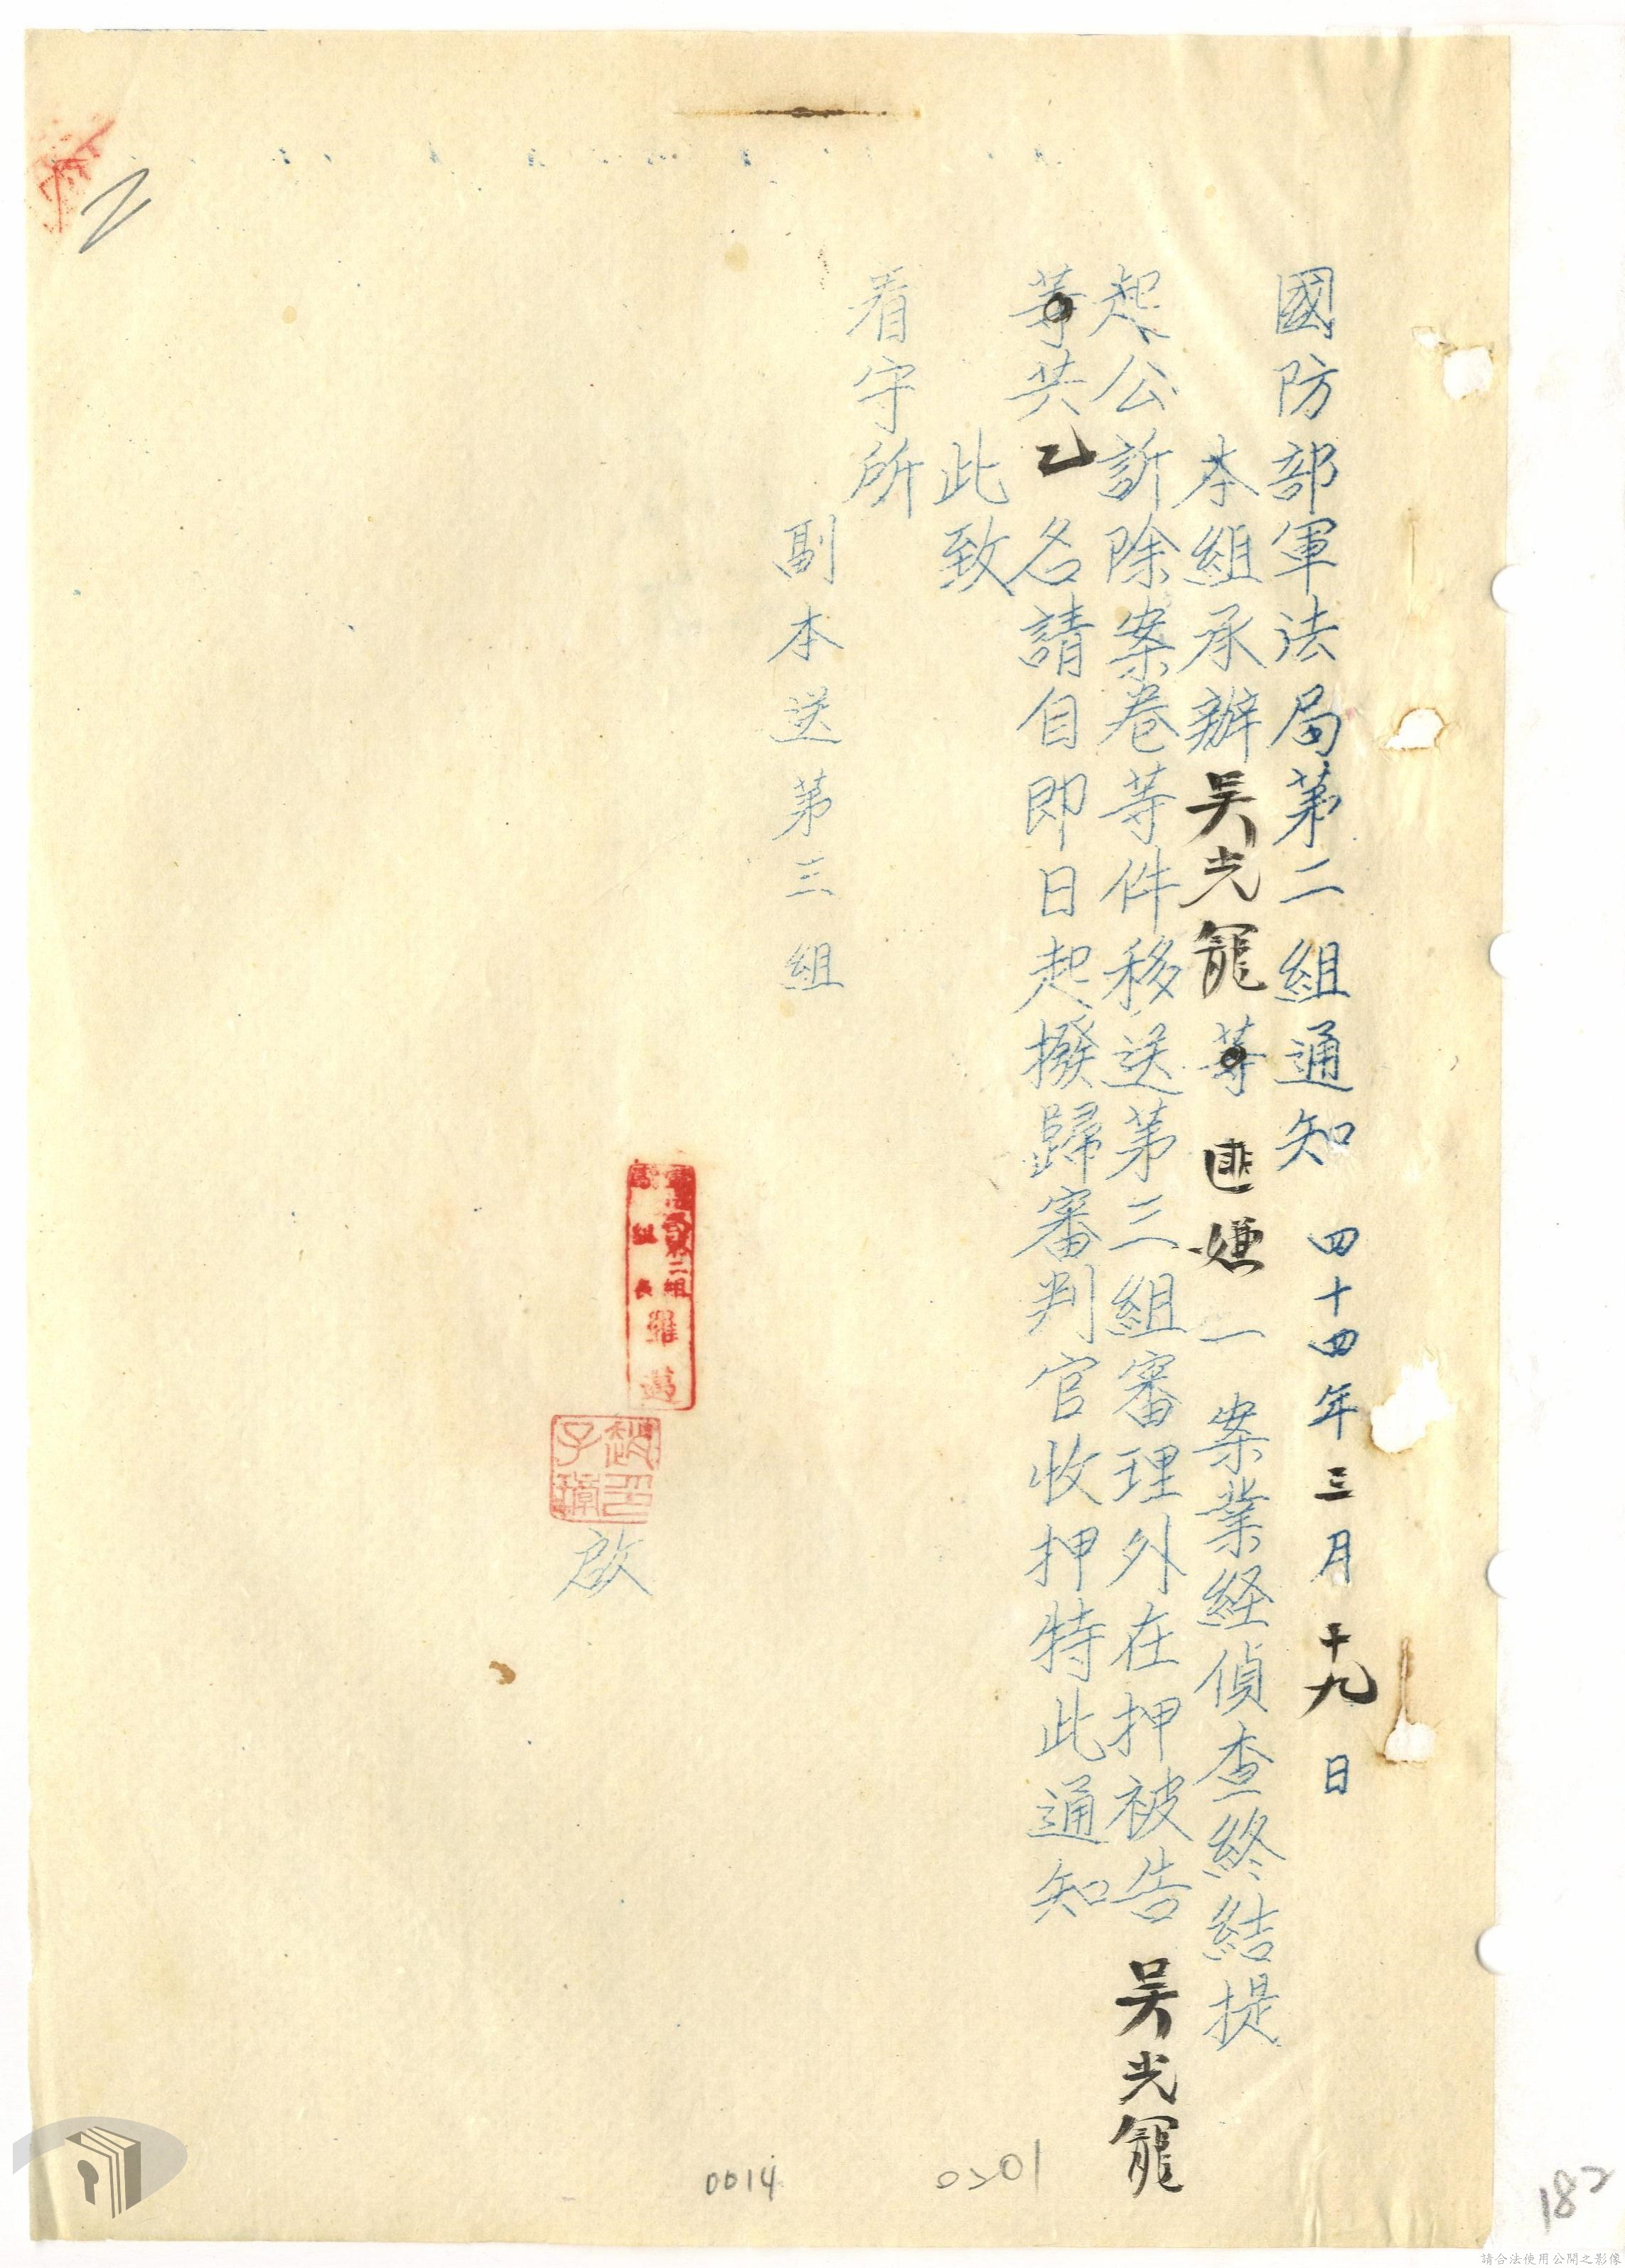 國防部軍法局第二組通知 四十四年三月十九日
本組承辦吳光寵等匪嫌一案業経偵查終結提
起公訴除案卷等件移送第三組審理外在押被告吳光寵
等共乙名請自即日起撥歸審判官收押特此通知
此致
看守所
副本送第三組
組長
趙子璋印
啟
0014
0301
187
請合法使用公開之影像